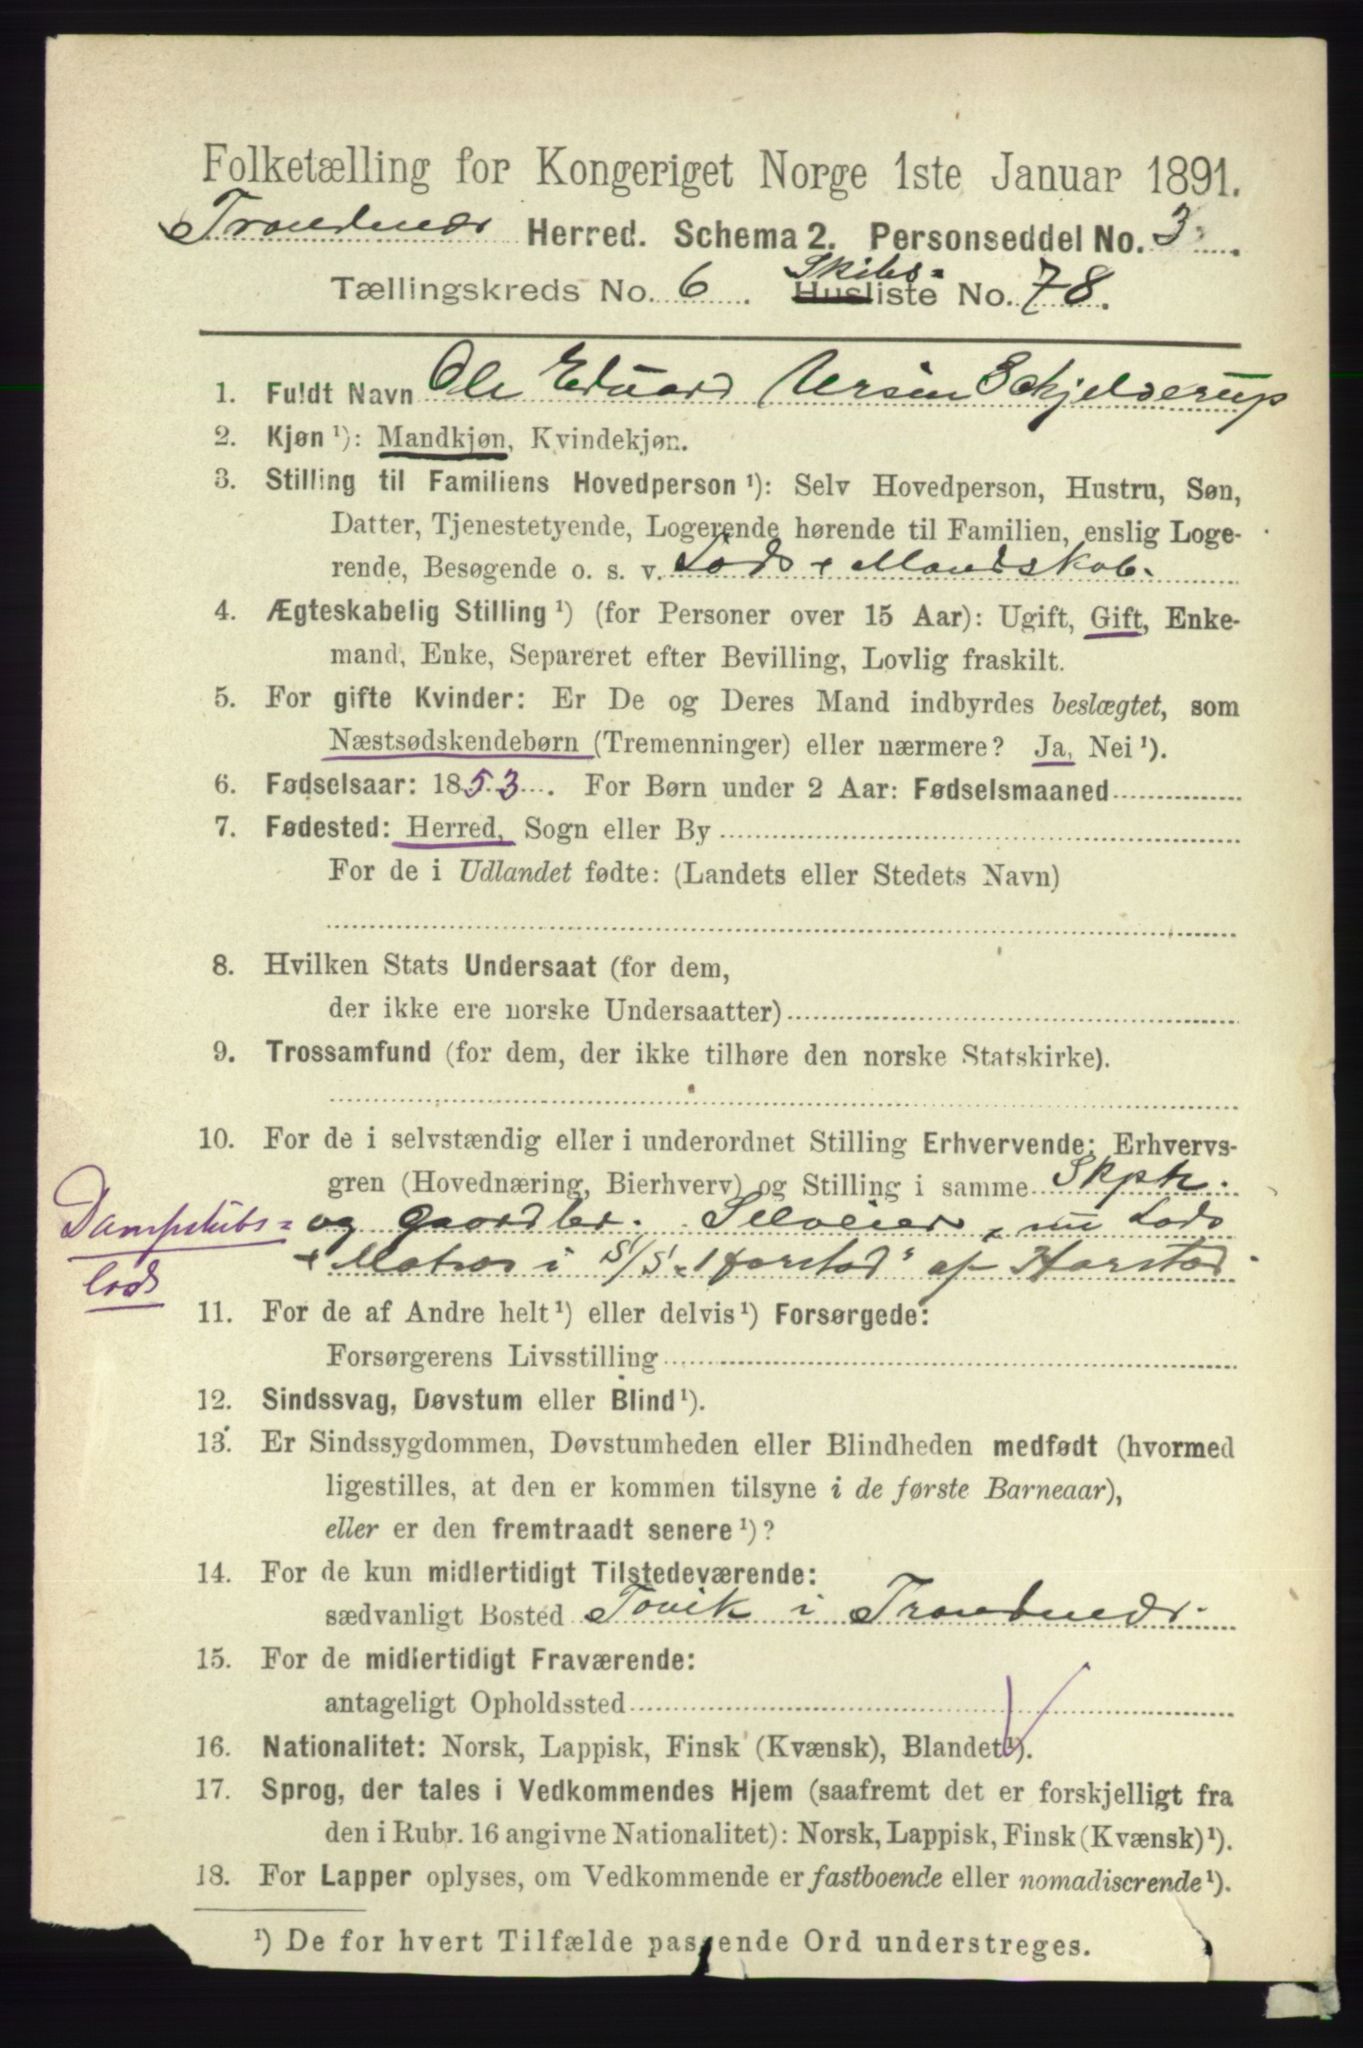 Folketælling for Kongeriget Norge 1ste Januar 1891.
Trondenæs Herred. Schema 2. Personseddel No. 3
Tællingskreds No. 6. Skibs= Husliste No. 78.
1. Fuldt Navn Ole Eduard Ursin Schjelderup
2. Kjøn ¹): Mandkjøn, Kvindekjøn.
3. Stilling til Familiens Hovedperson ¹): Selv Hovedperson, Hustru, Søn,
Datter, Tjenestetyende, Logerende hørende til Familien, enslig Loge-
rende, Besøgende o. s. v. Lods + Mandskab.
4. Ægteskabelig Stilling ¹) (for Personer over 15 Aar): Ugift, Gift, Enke-
mand, Enke, Separeret efter Bevilling, Lovlig fraskilt.
5. For gifte Kvinder: Er De og Deres Mand indbyrdes beslægtet, som
Næstsødskendebørn (Tremenninger) eller nærmere? Ja, Nei ¹).
6. Fødselsaar: 1853. For Børn under 2 Aar: Fødselsmaaned
7. Fødested: Herred, Sogn eller By
For de i Udlandet fødte: (Landets eller Stedets Navn)
8. Hvilken Stats Undersaat (for dem,
der ikke ere norske Undersaatter)
9. Trossamfund (for dem, der ikke tilhøre den norske Statskirke).
10. For de i selvstændig eller i underordnet Stilling Erhvervende: Erhvervs-
gren (Hovednæring, Bierhverv) og Stilling i samme Skph.
Dampskibs= og Gaardbr. Selveier, nu Lods
lods + Matros i S/S "Harstad" af Harstad
11. For de af Andre helt ¹) eller delvis ¹) Forsørgede:
Forsørgerens Livsstilling
12. Sindssvag, Døvstum eller Blind ¹).
13. Er Sindssygdommen, Døvstumheden eller Blindheden medfødt (hvormed
ligestilles, at den er kommen tilsyne i de første Barneaar),
eller er den fremtraadt senere ¹)?
14. For de kun midlertidigt Tilstedeværende:
sædvanligt Bosted Tovik i Trondenæs.
15. For de midlertidigt Fraværende:
antageligt Opholdssted
16. Nationalitet: Norsk, Lappisk, Finsk (Kvænsk), Blandet ¹).
17. Sprog, der tales i Vedkommendes Hjem (saafremt det er forskjelligt fra
den i Rubr. 16 angivne Nationalitet): Norsk, Lappisk, Finsk (Kvænsk) ¹).
18. For Lapper oplyses, om Vedkommende er fastboende eller nomadiserende ¹).
¹) De for hvert Tilfælde passende Ord understreges.